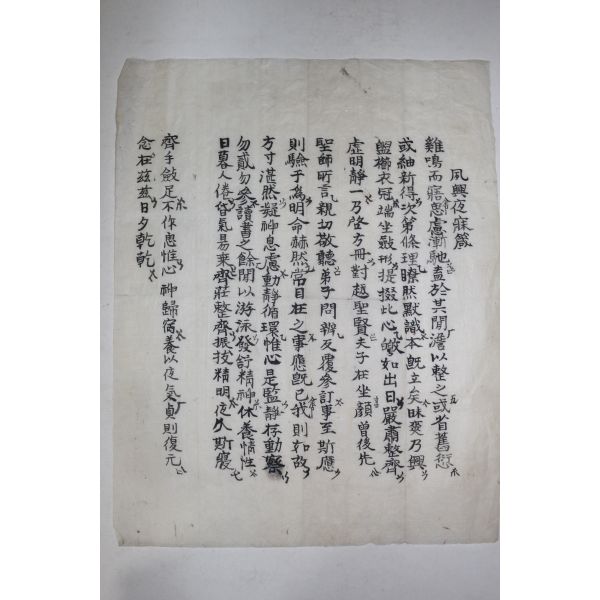 夙興夜寐箴
雞鳴而寤思慮漸馳盍於其間澹以整之或省舊愆
或紬新得次第條理瞭然默識本旣立矣昧爽乃興
盥櫛衣冠端坐斂形提掇此心皦如出日嚴肅整齊
虛明靜一乃啓方冊對越聖賢夫子在坐顔曾後先
聖師所言親切敬聽弟子問辨反覆參訂事至斯應
則驗于爲明命赫然常目在之事應旣已我則如故
方寸湛然凝神息慮動靜循環惟心是監靜存動察
勿貳勿參讀書之餘間以游泳發舒精神休養情性
日暮人倦昏氣易乘齊莊整齊振拔精明夜久斯寢
齊手斂足不作思惟心神歸宿養以夜氣貞則復元
念在玆玆日夕乾乾